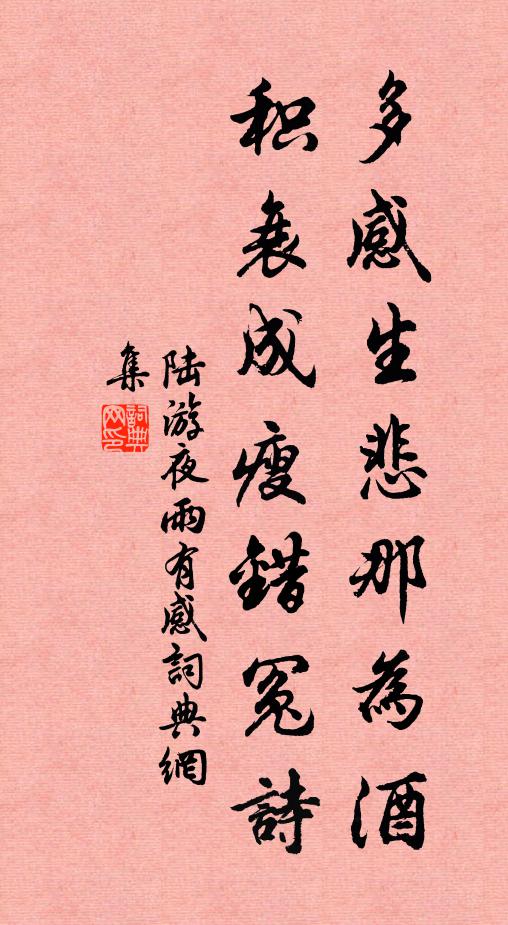 多感生悲那為酒
积衰成瘦錯冤詩
陆游夜雨有感詞典網
集
詞典网印